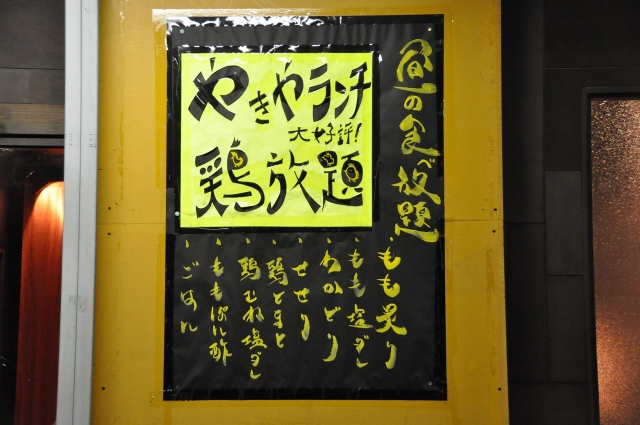 昼の食べ放題
やきやランチ
大好評!
鶏放題
・もも炙り
・もも塩ダレ
・わかどり
・せせり
・鶏とまと
・鶏むね塩ダレ
・ももぽん酢
・ごはん